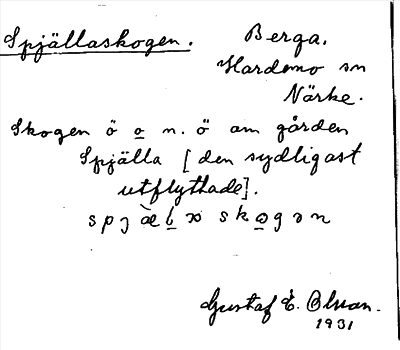 Spjällaskogen.
Berga.
Hardemo sn
Närke.
Skogen ö o n. ö om gården
Spjälla [den sydligast
utflyttade].
Gustaf E. Olson.
1931